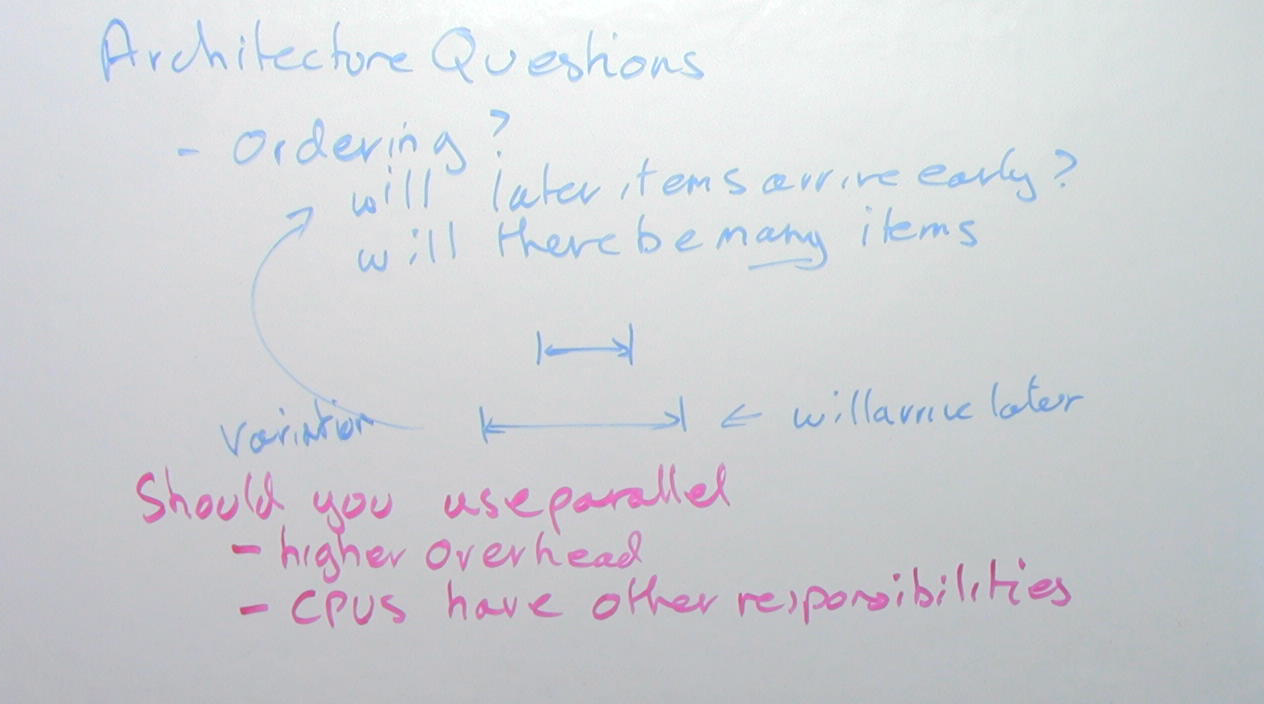 Architecture Questions
- Ordering?
will later items arrive early?
will there be many items
variation
← will arrive later
Should you use parallel
- higher overhead
- CPUs have other responsibilities